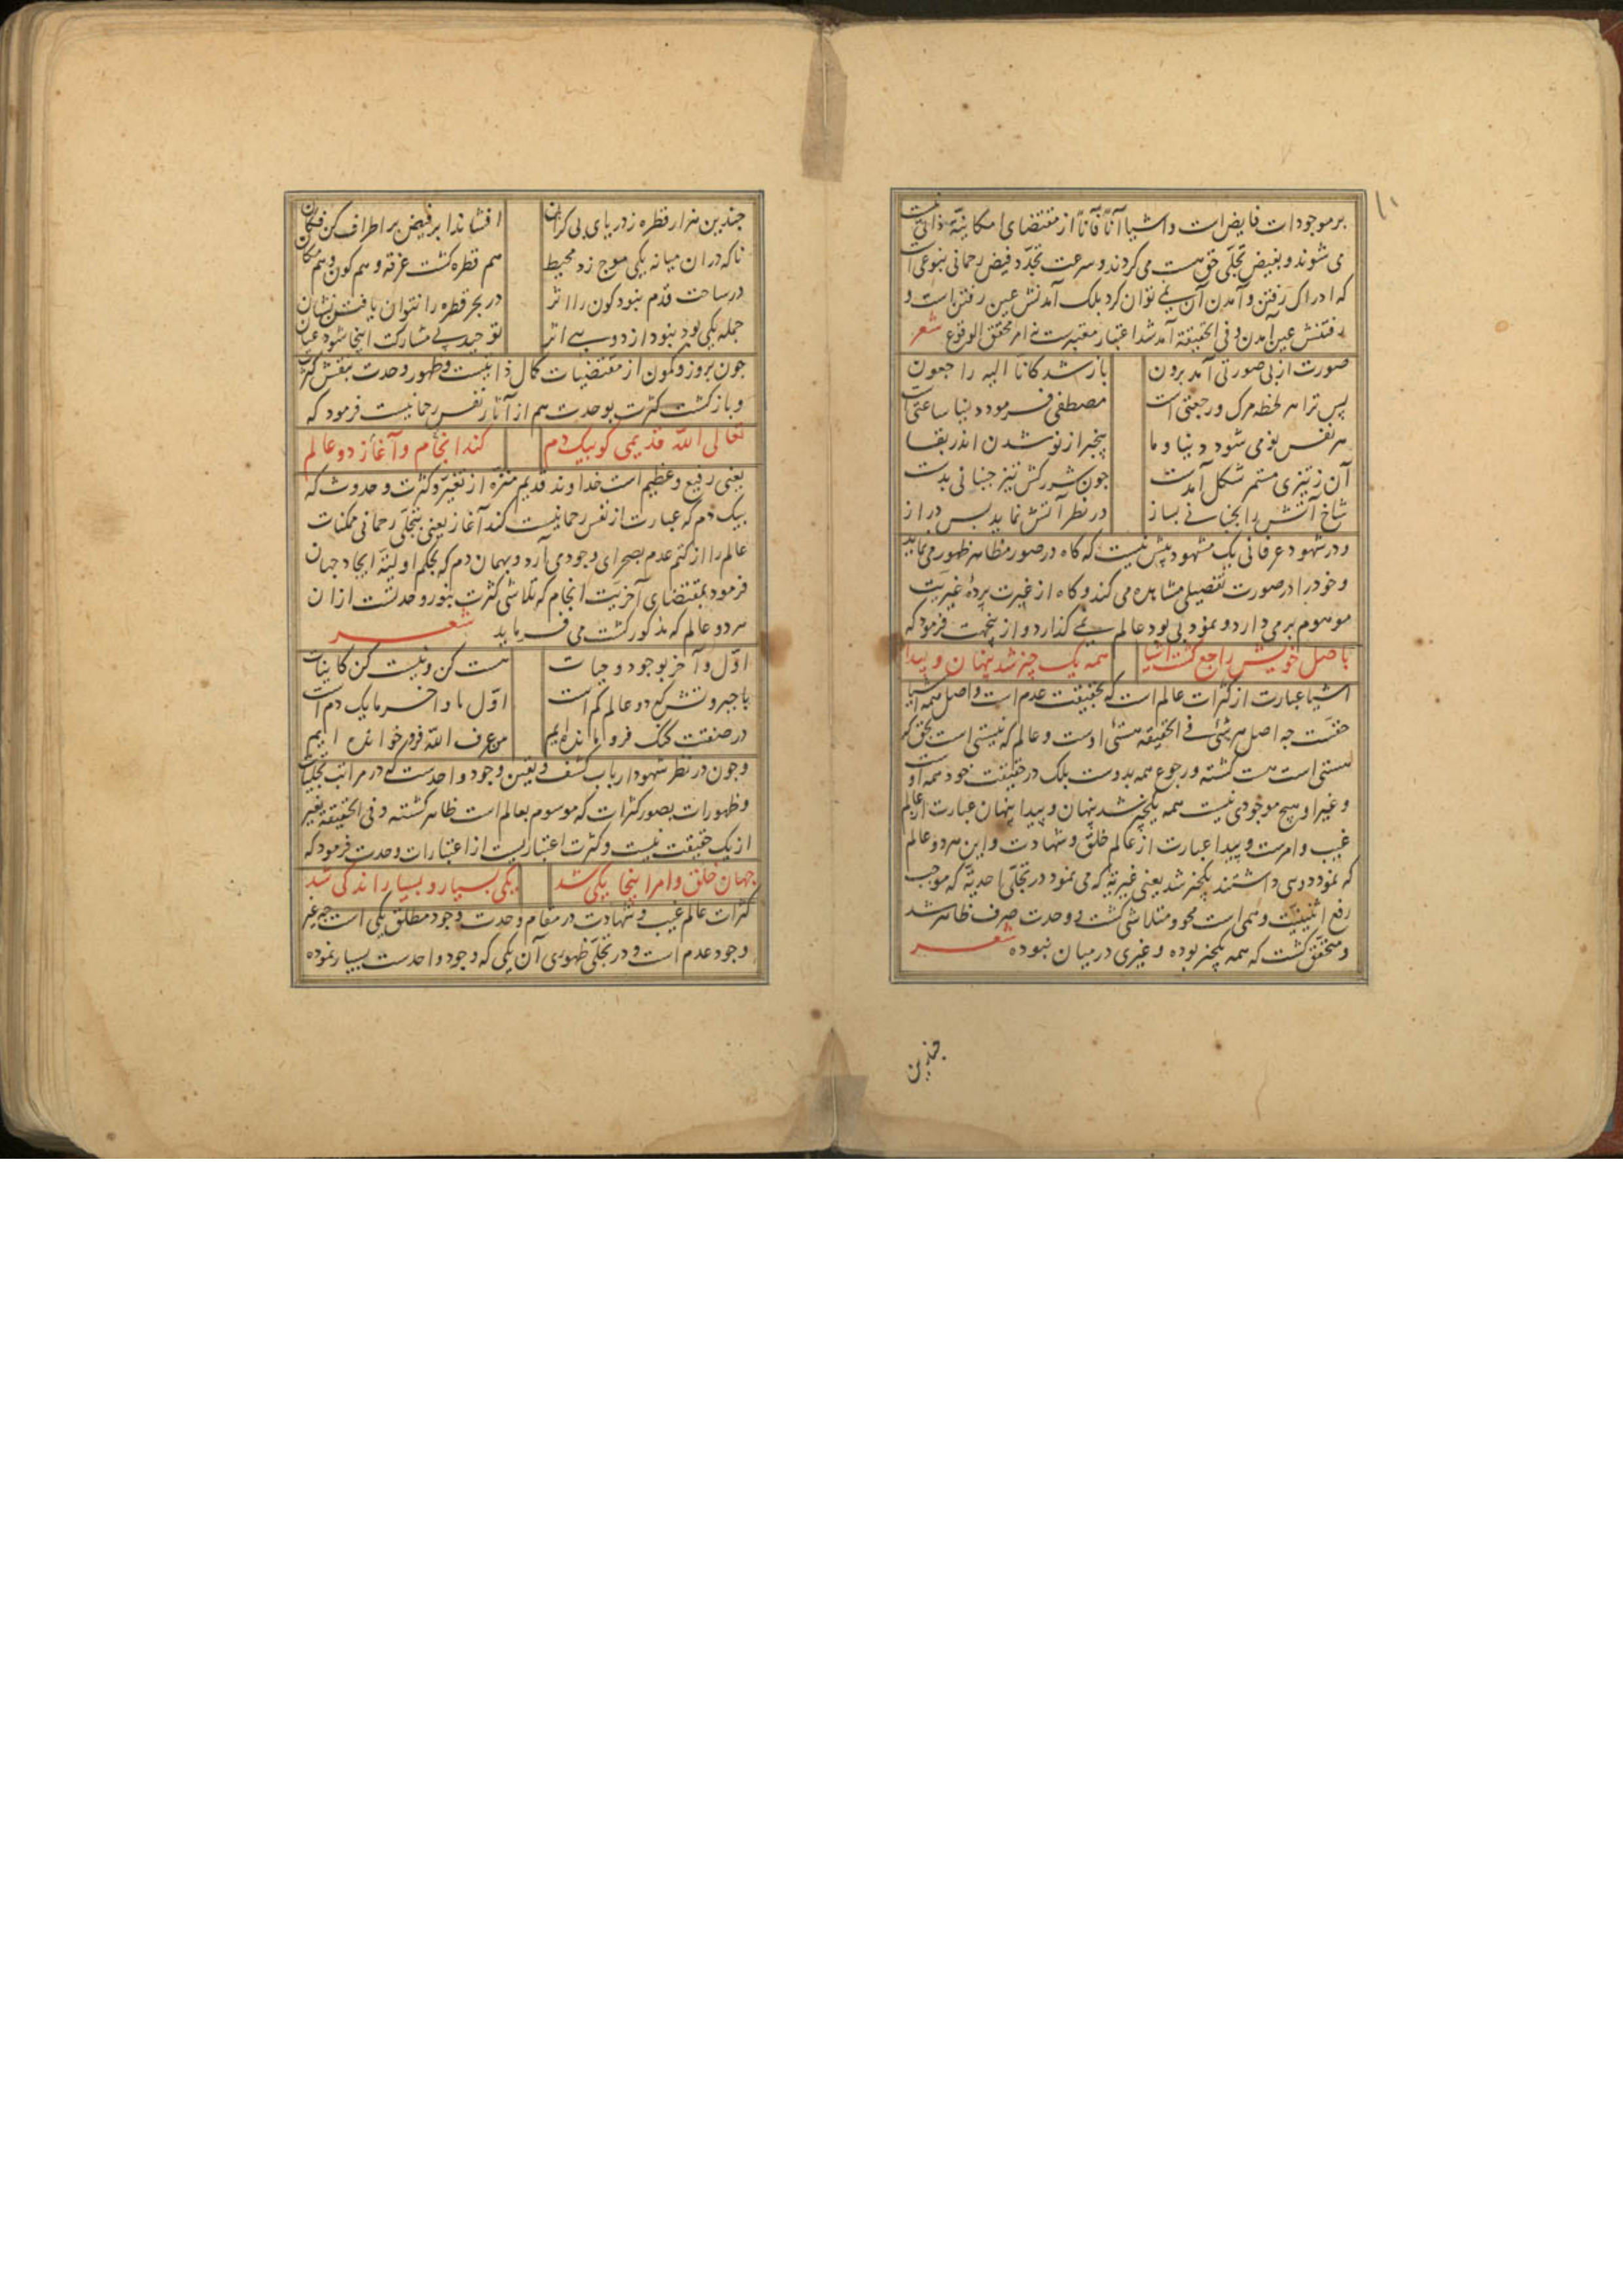 ۱۱
بر موجودات فایض است و اشیا آناً فآناً از مقتضای امکانیّة ذاتی نیست
می شوند و بفیض تجلّی حق هست می گردند و سرعت تجدّد فیض رحمانی بنوعی است
که ادراک رفتن و آمدن آن نمی توان کرد بلک آمدنش عین رفتن است و
رفتنش عین آمدن و فی الحقیقة آمد شد اعتبار معتبرست نه امر محقق الوقوع شعر
صورت از بی صورتی آمد برون باز شد کانّا الیه راجعون
پس ترا هر لحظه مرک و رجعتی است مصطفی فرمود دنیا ساعتی است
هر نفس نو می شود دنیا و ما بیخبر از نو شدن اندر بقا
آن ز تیزی مستمر شکل آمدست چون شرر کش تیز جنبانی بدست
شاخ آتش را بجنبانی بساز در نظر آتش نماید بس دراز
و در شهود عرفانی یک مشهود بیش نیست که کاه در صور مظاهر ظهور می نماید
و خود را در صورت تفصیلی مشاهده می کند و کاه از غیرت پردهٔ غیریت
موهوم بر می دارد و نمود بی بود عالم نمی گذارد و از ینجهت فرمود که
باصل خویش راجع گشت اشیا همه یک چیز شد پنهان و پیدا
اشیا عبارت از کثرات عالم است که بحقیقت عدم است و اصل همه اشیا
حقست چه اصل هر شیٔ فی الحقیقه هستیٔ اوست و عالم که نیستی است بحق که
هستی است هست گشته و رجوع همه بدوست بلک در حقیقت خود همه اوست
و غیر او هیچ موجودی نیست همه یکچیز شد پنهان و پیدا پنهان عبارت از عالم
غیب و امرست و پیدا عبارت از عالم خلق و شهادت و این هر دو عالم
که نمود دوی داشتند یکچیز شد یعنی غیریّة که می نمود در تجلّی احدیّة که موجب
رفع اثنینیّت وهمی است محو و متلاشی گشت و وحدت صرف ظاهر شد
و متحقق گشت که همه یکچیز بوده و غیری در میان نبوده شعر
چندین
چندین هزار قطره ز دریای بی کران افشاند ابر فیض بر اطراف کن فکان
ناکه در ان میانه یکی موج زد محیط هم قطره گشت غرقه و هم کون و هم مکان
در ساحت قدم نبود کون را اثر در بحر قطره را نتوان یافتن نشان
جمله یکی بود نبود از دویی اثر توحید بی مشارکت اینجا شود عیان
چون بروز و کمون از مقتضیات کمال ذاتیست و ظهور وحدت بنقش کثرت
و باز گشت کثرت بوحدت هم از آثار نفس رحمانیست فرمود که
تعالی اللّه قدیمی کو بیک دم کند انجام و آغاز دو عالم
یعنی رفیع و عظیم است خداوند قدیم منزّه از تغیّر و کثرت و حدوث که
بیک دم که عبارت از نفس رحمانیست کند آغاز یعنی بتجلّی رحمانی ممکنات
عالم را از کتم عدم بصحرای وجود می آرد و بهمان دم که بحکم اولیّة ایجاد جهان
فرمود بمقتضای آخریّت انجام که تلاشی کثرت بنور وحدتست از ان
هر دو عالم که مذکور گشت می فرماید شعر
اوّل و آخر بوجود و حیات هست کن و نیست کن کاینات
با جبروتش که دو عالم کم است اوّل ما و آخر ما یک دم است
در صنعتت گنگ فرو مانده ایم من عرف اللّه فرو خوانده ایم
و چون در نظر شهود ارباب کشف و یقین وجود واحدست که در مراتب تجلیات
و ظهورات بصور کثرات که موسوم بعالم است ظاهر گشته و فی الحقیقه بغیر
از یک حقیقت نیست و کثرت اعتباریست از اعتبارات وحدت فرمود که
جهان خلق و امر اینجا یکی شد یکی بسیار و بسیار اندکی شد
کثرات عالم غیب و شهادت در مقام وحدت وجود مطلق یکی است چه غیر
وجود عدم است و در تجلّی ظهوری آن یکی که وجود واحدست بسیار نموده